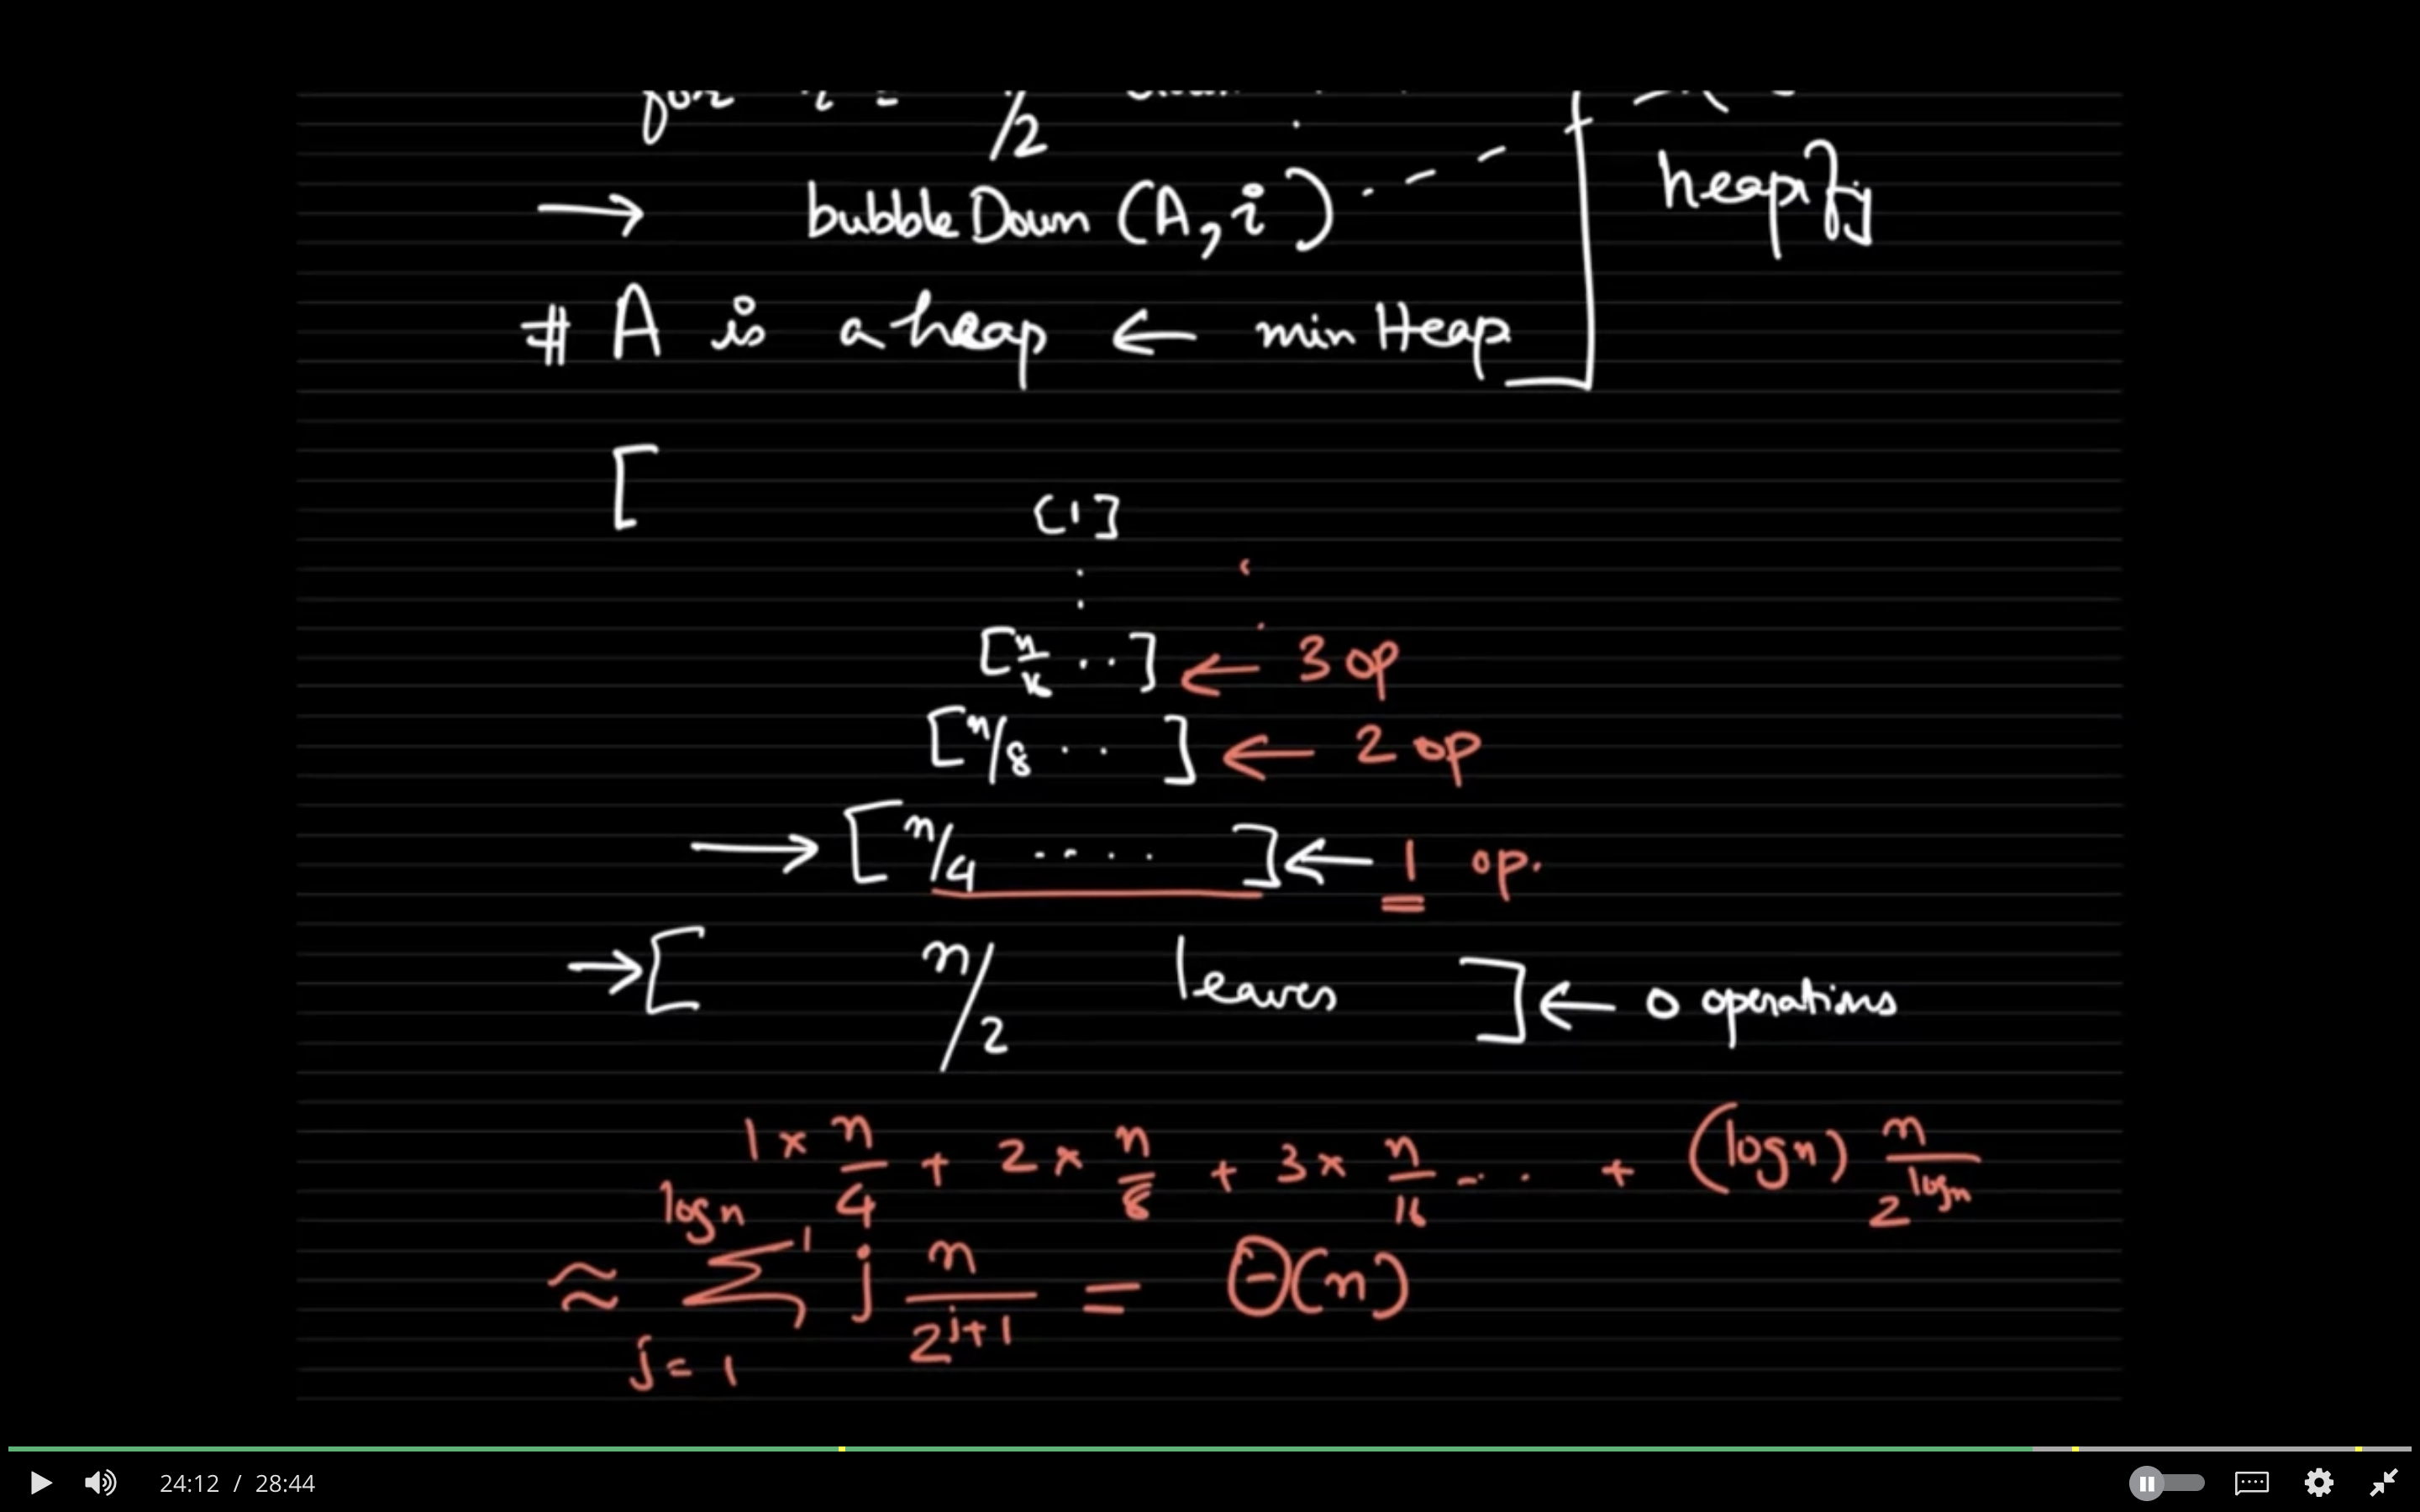 for i = /2
→ bubbleDown (A, i) heapify
# A is a heap ← minHeap
[
[1]
:
[n/k ..] ← 3 op
[n/8 .. ] ← 2 op
→ [n/4 .... ] ← 1 op.
→ [ n/2 leaves ] ← 0 operations
1 × n/4 + 2 × n/8 + 3 × n/16 ... + (log n) n/2^log n
≈ log n ∑ j=1 j n/2^j+1 = Θ(n)
24:12 / 28:44